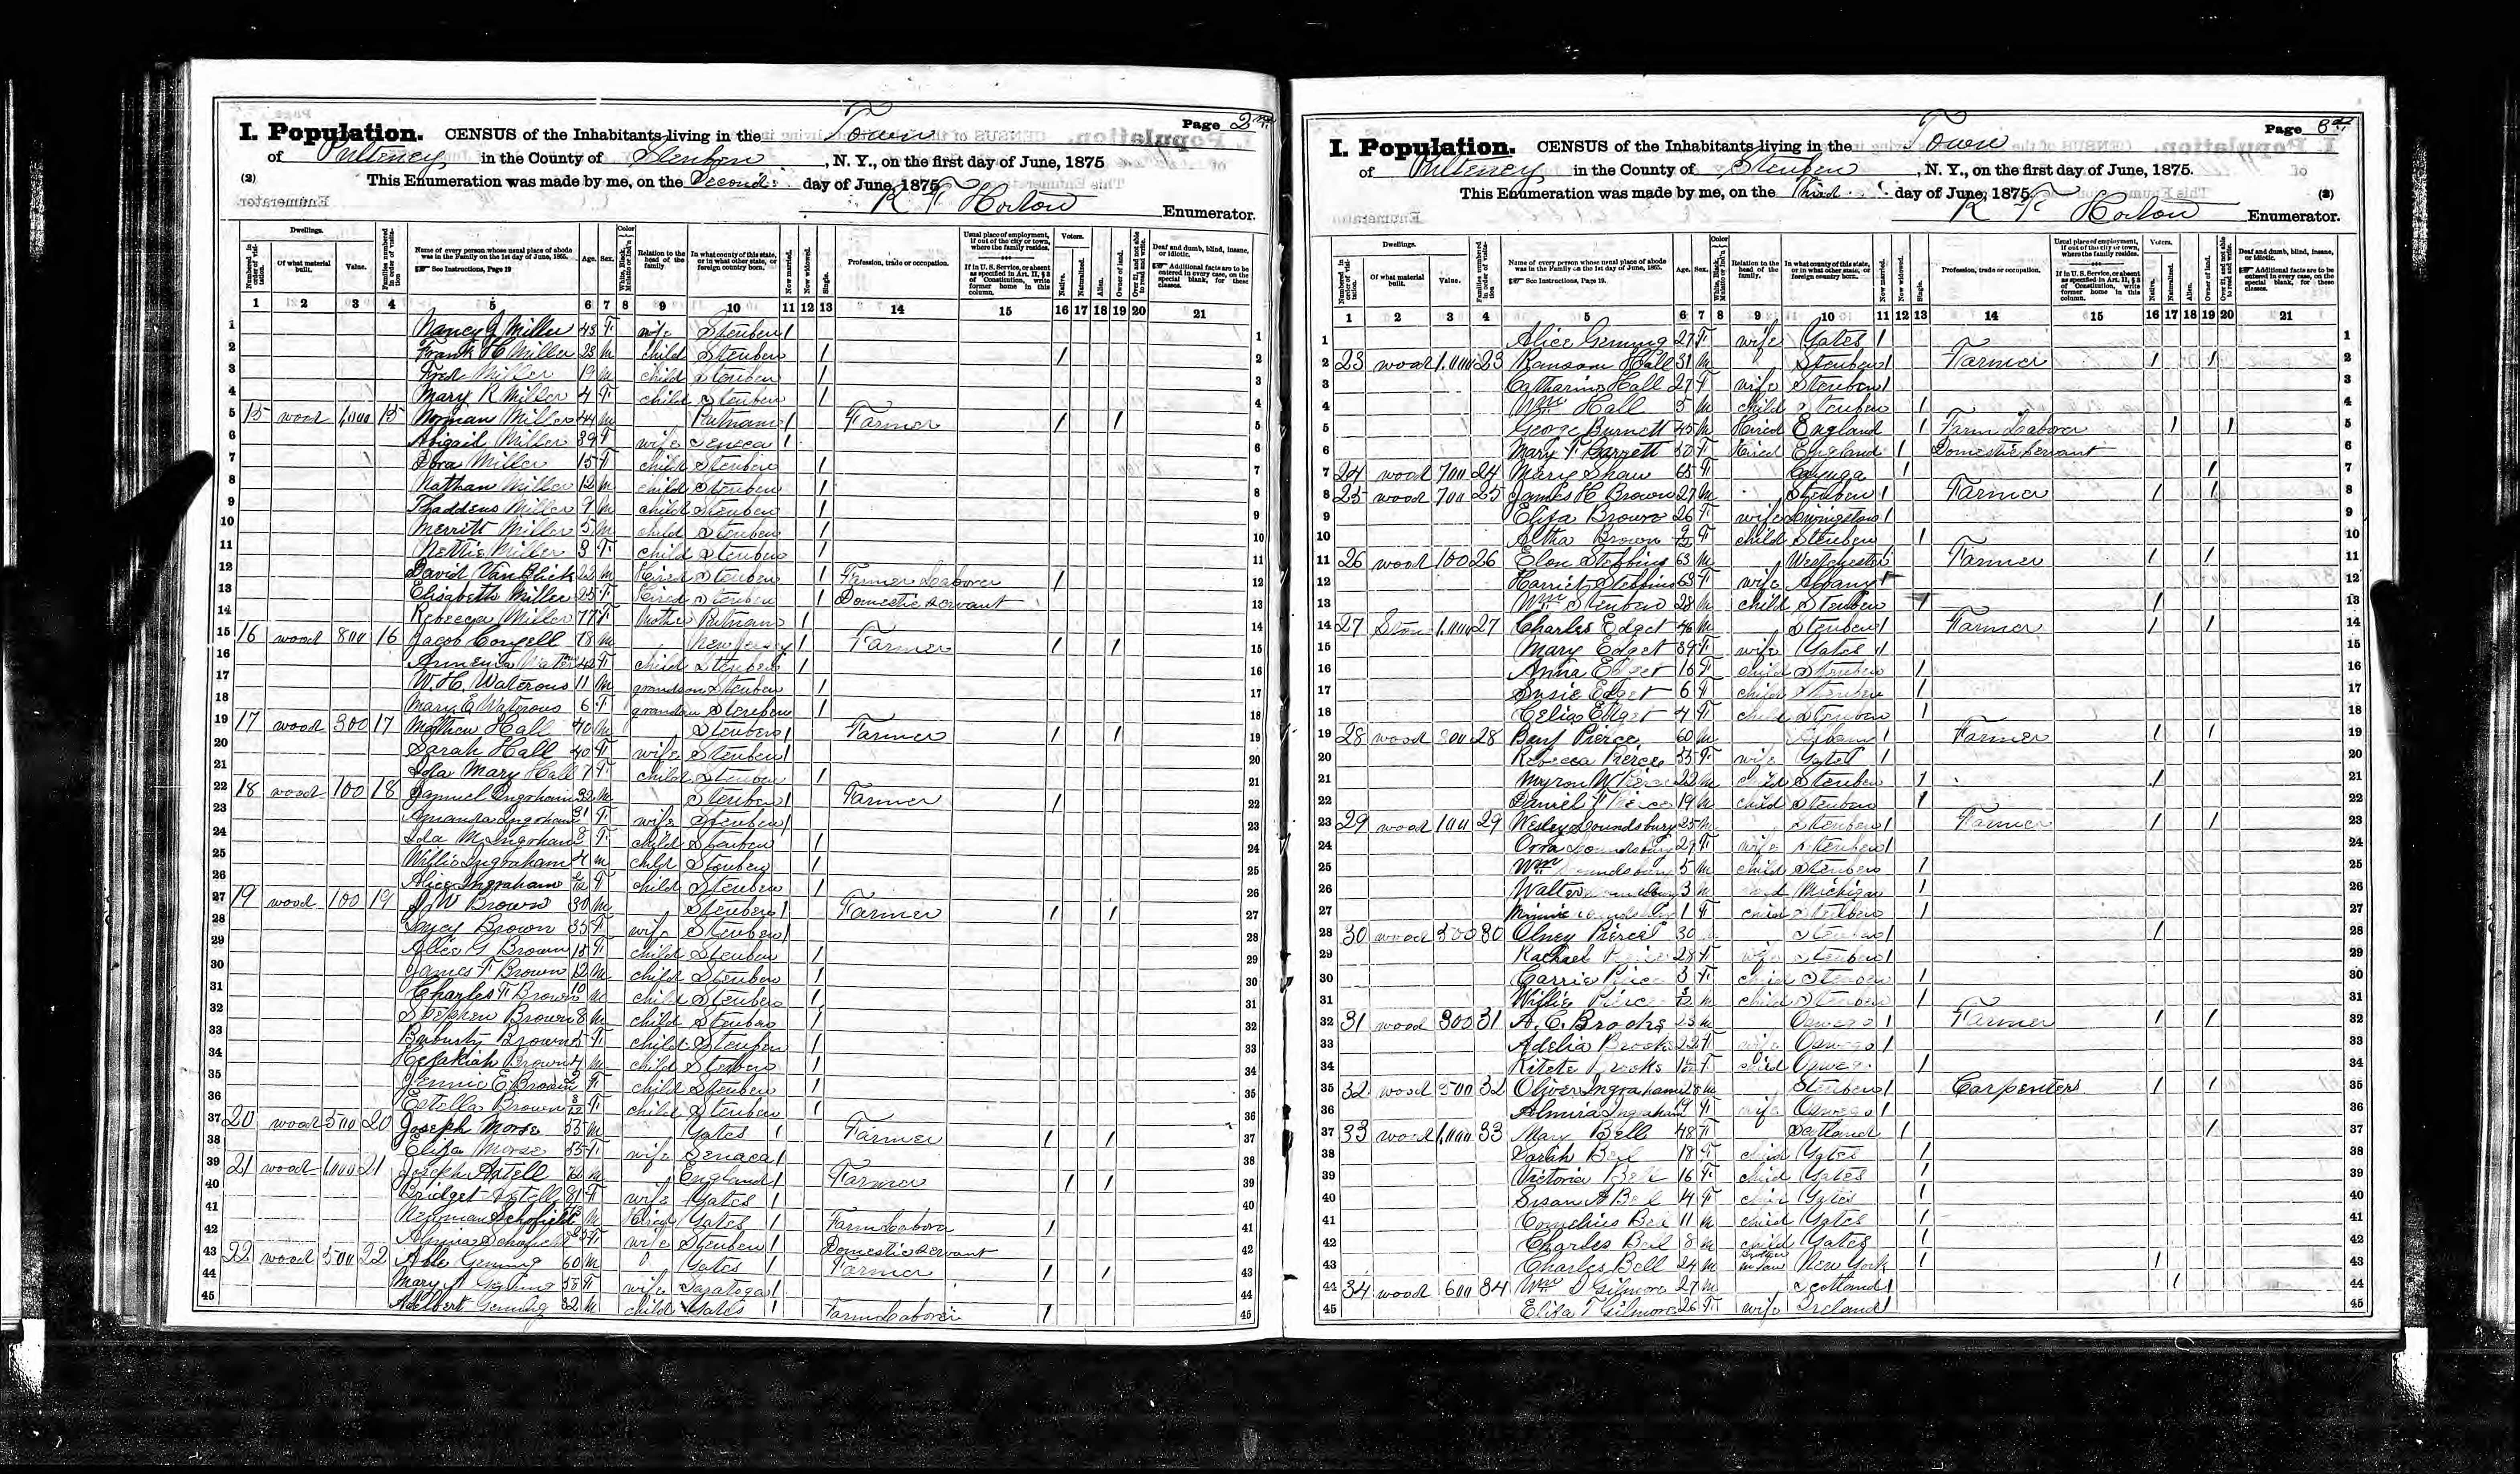 Page 2nd
I. Population. CENSUS of the Inhabitants living in the Town
of Pulteney in the County of Steuben, N. Y., on the first day of June, 1875
(2) This Enumeration was made by me, on the Second day of June, 1875
R F Horton Enumerator.
Dwellings. Voters.
Numbered in order of visitation. Of what material built. Value. Families numbered in order of visitation. Name of every person whose usual place of abode was in the Family on the 1st day of June, 1865. See Instructions, Page 19 Age. Sex. Color White, Black, Mulatto or Ind'n Relation to the head of the family. In what county of this state, or in what other state, or foreign country born. Now married. Now widowed. Single. Profession, trade or occupation. Usual place of employment, if out of the city or town, where the family resides. If in U. S. Service, or absent as specified in Art. II, § 3 of Constitution, write former home in this column. Native. Naturalized. Alien. Owner of land. Over 21, and not able to read and write. Deaf and dumb, blind, insane, or idiotic. Additional facts are to be entered in every case, on the special blank, for these classes.
1 2 3 4 5 6 7 8 9 10 11 12 13 14 15 16 17 18 19 20 21
1 Nancy J Miller 48 F wife Steuben 1
2 Frank H Miller 23 M child Steuben 1 1
3 Fred Miller 19 M child Steuben 1
4 Mary R Miller 4 F child Steuben 1
5 15 wood 1,000 15 Norman Miller 44 M Putnam 1 Farmer 1 1
6 Abigail Miller 39 F wife Seneca 1
7 Dora Miller 15 F child Steuben 1
8 Nathan Miller 12 M child Steuben 1
9 Thaddeus Miller 9 M child Steuben 1
10 Merritt Miller 5 M child Steuben 1
11 Nettie Miller 3 F child Steuben 1
12 David Van 22 M Hired Steuben 1 Farmer Laborer 1
13 Elisabeth Miller 25 F Hired Steuben 1 Domestic Servant
14 Rebecca Miller 77 F Mother Putnam 1
15 16 wood 800 16 Jacob Coryell 78 M New Jersey 1 Farmer 1 1
16 Armenia 42 F child Steuben 1
17 W. H. Waterous 11 M grandson Steuben 1
18 Mary E Waterous 6 F Steuben 1
19 17 wood 300 17 Mathew Hall 40 M Steuben 1 Farmer 1 1
20 Sarah Hall 40 F wife Steuben 1
21 Ida Mary Hall 7 F child Steuben 1
22 18 wood 100 18 Samuel Ingraham 32 M Steuben 1 Farmer 1
23 Amanda Ingraham 31 F wife Steuben 1
24 Ida M Ingraham 8 F child Steuben 1
25 Willie Ingraham 4 M child Steuben 1
26 Alice Ingraham F child Steuben 1
27 19 wood 100 19 Brown 30 M Steuben 1 Farmer 1 1
28 Lucy Brown 35 F wife Steuben 1
29 Alice G Brown 15 F child Steuben 1
30 James F Brown 12 M child Steuben 1
31 Charles F Brown 10 M child Steuben 1
32 Stephen Brown 8 M child Steuben 1
33 Brown 5 F child Steuben 1
34 Hezakiah Brown 4 M child Steuben 1
35 Jennie E Brown 2 F child Steuben 1
36 Estella Brown 8/12 F child Steuben 1
37 20 wood 500 20 Joseph Morse 55 M Yates 1 Farmer 1 1
38 Eliza Morse 55 F wife Senaca 1
39 21 wood 1,000 21 Joseph Axtell M England 1 Farmer 1 1
40 Bridget Axtell F wife Yates 1
41 Schofield M Hired Yates 1 Farm Labore 1
42 Schofield F wife Steuben 1 Domestic Servant
43 22 wood 500 22 Able Genung 60 M Yates 1 Farmer 1 1
44 Mary A Genung 58 F wife Saratoga 1
45 Adelbert Genung 32 M child Yates 1 Farm Laborer 1
Page 3rd
I. Population. CENSUS of the Inhabitants living in the Town
of Pulteney in the County of Steuben, N. Y., on the first day of June, 1875.
This Enumeration was made by me, on the Third day of June, 1875. (3)
R F Horton Enumerator.
Dwellings. Voters.
Numbered in order of visitation. Of what material built. Value. Families numbered in order of visitation Name of every person whose usual place of abode was in the Family on the 1st day of June, 1865. See Instructions, Page 19. Age. Sex. Color White, Black, Mulatto or Ind'n Relation to the head of the family. In what county of this state, or in what other state, or foreign country born. Now married. Now widowed. Single. Profession, trade or occupation. Usual place of employment, if out of the city or town, where the family resides. If in U. S. Service, or absent as specified in Art. II, § 3 of Constitution, write former home in this column. Native. Naturalized. Alien. Owner of land. Over 21, and not able to read and write. Deaf and dumb, blind, insane, or idiotic. Additional facts are to be entered in every case, on the special blank, for these classes.
1 2 3 4 5 6 7 8 9 10 11 12 13 14 15 16 17 18 19 20 21
1 Alice Genung 27 F wife Yates 1
2 23 wood 1,000 23 Ransom Hall 31 M Steuben 1 Farmer 1 1
3 Catharine Hall 27 F wife Steuben 1
4 Wm Hall 5 M child Steuben 1
5 George Burnett 45 M Hired England 1 Farm Laborer 1 1
6 Mary F Garrett 30 F Hired England 1 Domestic Servant
7 24 wood 700 24 Mary Shaw 65 F Cayuga 1 1
8 25 wood 700 25 James H Brown 27 M Steuben 1 Farmer 1 1
9 Eliza Brown 26 F wife Livingston 1
10 Altha Brown F child Steuben 1
11 26 wood 100 26 Elon Stebbins 63 M Westchester Farmer 1 1
12 Harriet Stebbins 63 F wife Albany 1
13 Wm Steuben 28 M child Steuben 1 1
14 27 Ston 1,000 27 Charles Edget 46 M Steuben 1 Farmer 1 1
15 Mary Edget 39 F wife Yates 1
16 Anna Edget 16 F child Steuben 1
17 Susie Edget 6 F child Steuben 1
18 Celia Edget 4 F child Steuben 1
19 28 wood 300 28 Benj Pierce 60 M 1 Farmer 1 1
20 Rebecca Pierce 55 F wife Yates 1
21 Myron W Pierce 22 M child Steuben 1 1
22 Daniel F Pierce 19 M child Steuben 1
23 29 wood 100 29 Wesley Loundsbury 25 M Steuben 1 Farmer 1 1
24 Orra Loundsbury 29 F wife Steuben 1
25 Wm Loundsbury 5 M child Steuben 1
26 Walter Loundsbury 3 M child Michigan 1
27 Minnie Loundsbury 1 F child Steuben 1
28 30 wood 300 30 Olney Pierce 30 Steuben 1 1
29 Rachael Pierce 28 F wife Steuben 1
30 Carrie Pierce 3 F child Steuben 1
31 Willie Pierce M child Steuben 1
32 31 wood 300 31 A. E. Brooks M Oswego 1 Farmer 1 1
33 Adelia Brooks 22 F wife Oswego 1
34 Brooks F child Oswego 1
35 32 wood 500 32 Oliver Ingraham 28 M Steuben 1 Carpenters 1 1
36 Almira Ingraham 19 F wife Oswego 1
37 33 wood 1,000 33 Mary Bell 48 F Scotland 1 1
38 Sarah Bell 18 F child Yates 1
39 Victoria Bell 16 F child Yates 1
40 Susan A Bell 14 F child Yates 1
41 Cornelius Bell 11 M child Yates 1
42 Charles Bell 8 M child Yates 1
43 Charles Bell 24 M Brother in law New York 1 1
44 34 wood 600 34 Wm Gilmore 27 M Scotland 1 1
45 Eliza T Gilmore 26 F wife Ireland 1